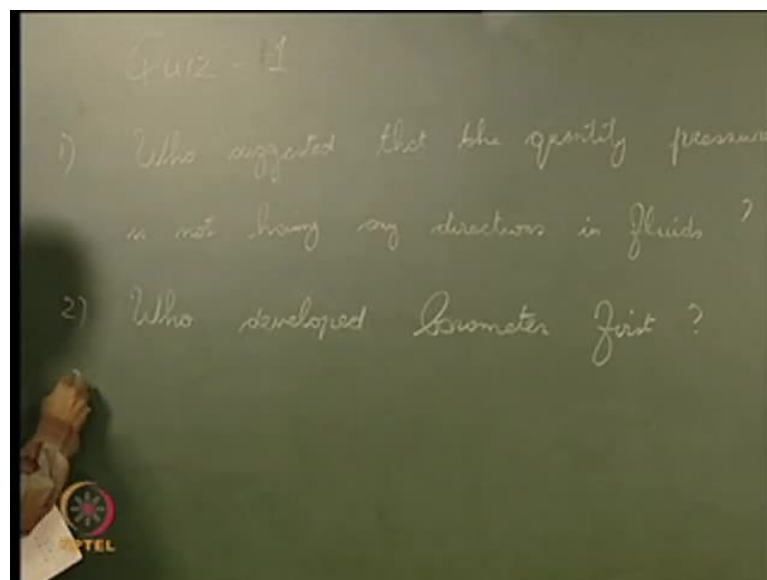 Quiz - 1
1) Who suggested that the quantity pressure
is not having any directions in fluids ?
2) Who developed Barometer first ?
NPTEL